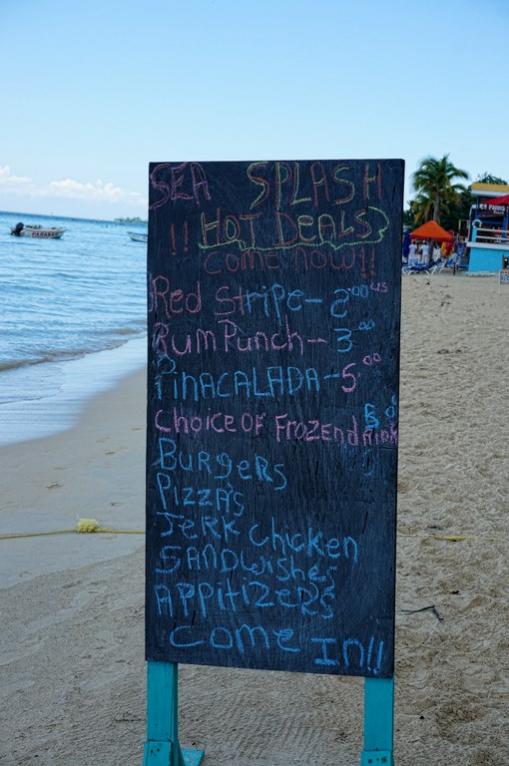 SEA SPLASH
!! HOT DEALS
come now!!
Red Stripe - 2.00 US
Rum Punch - 3.00
PINACALADA - 5.00
choice OF Frozen drink
BurgerS
Pizza's
Jerk chicken
SANDwishes
APPitizeRS
come In!!